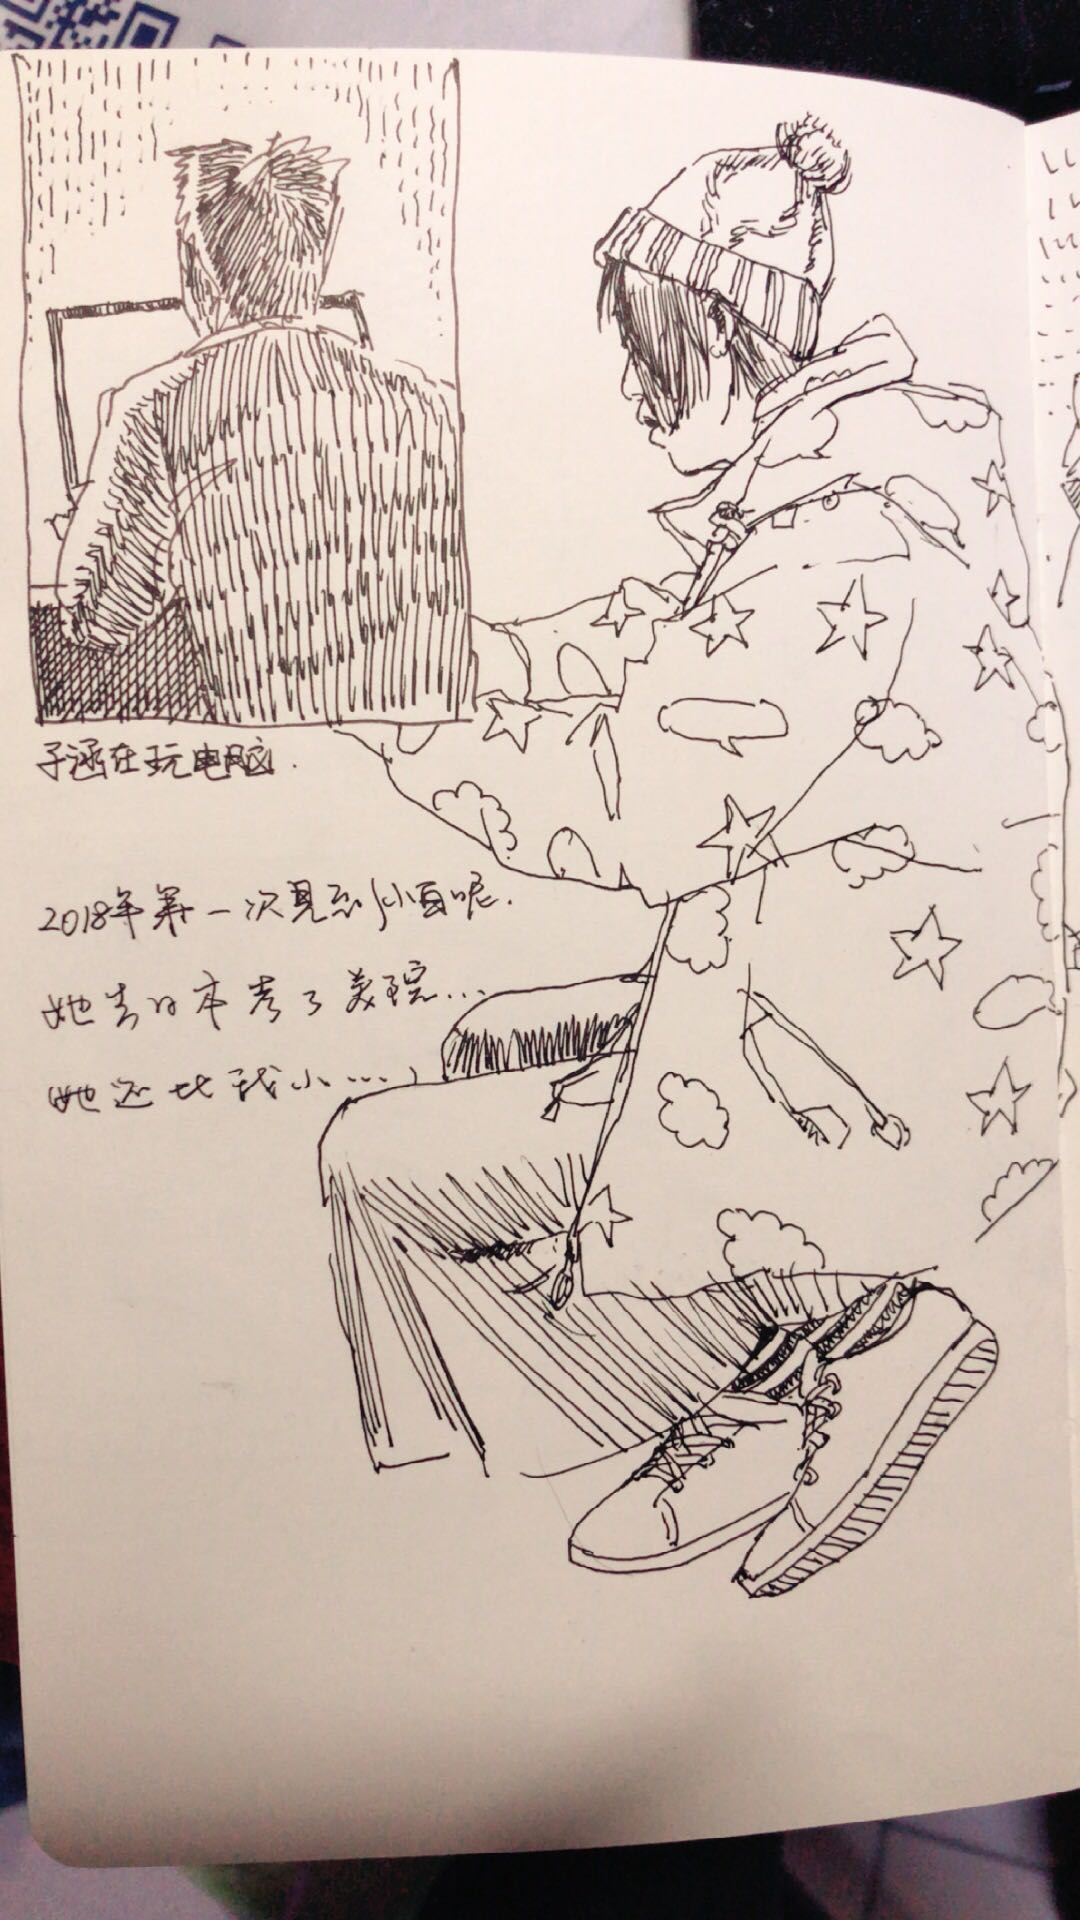 子涵在玩电脑.
2018年第一次见到小百呢.
她去日本考了美院...
她还比我小...